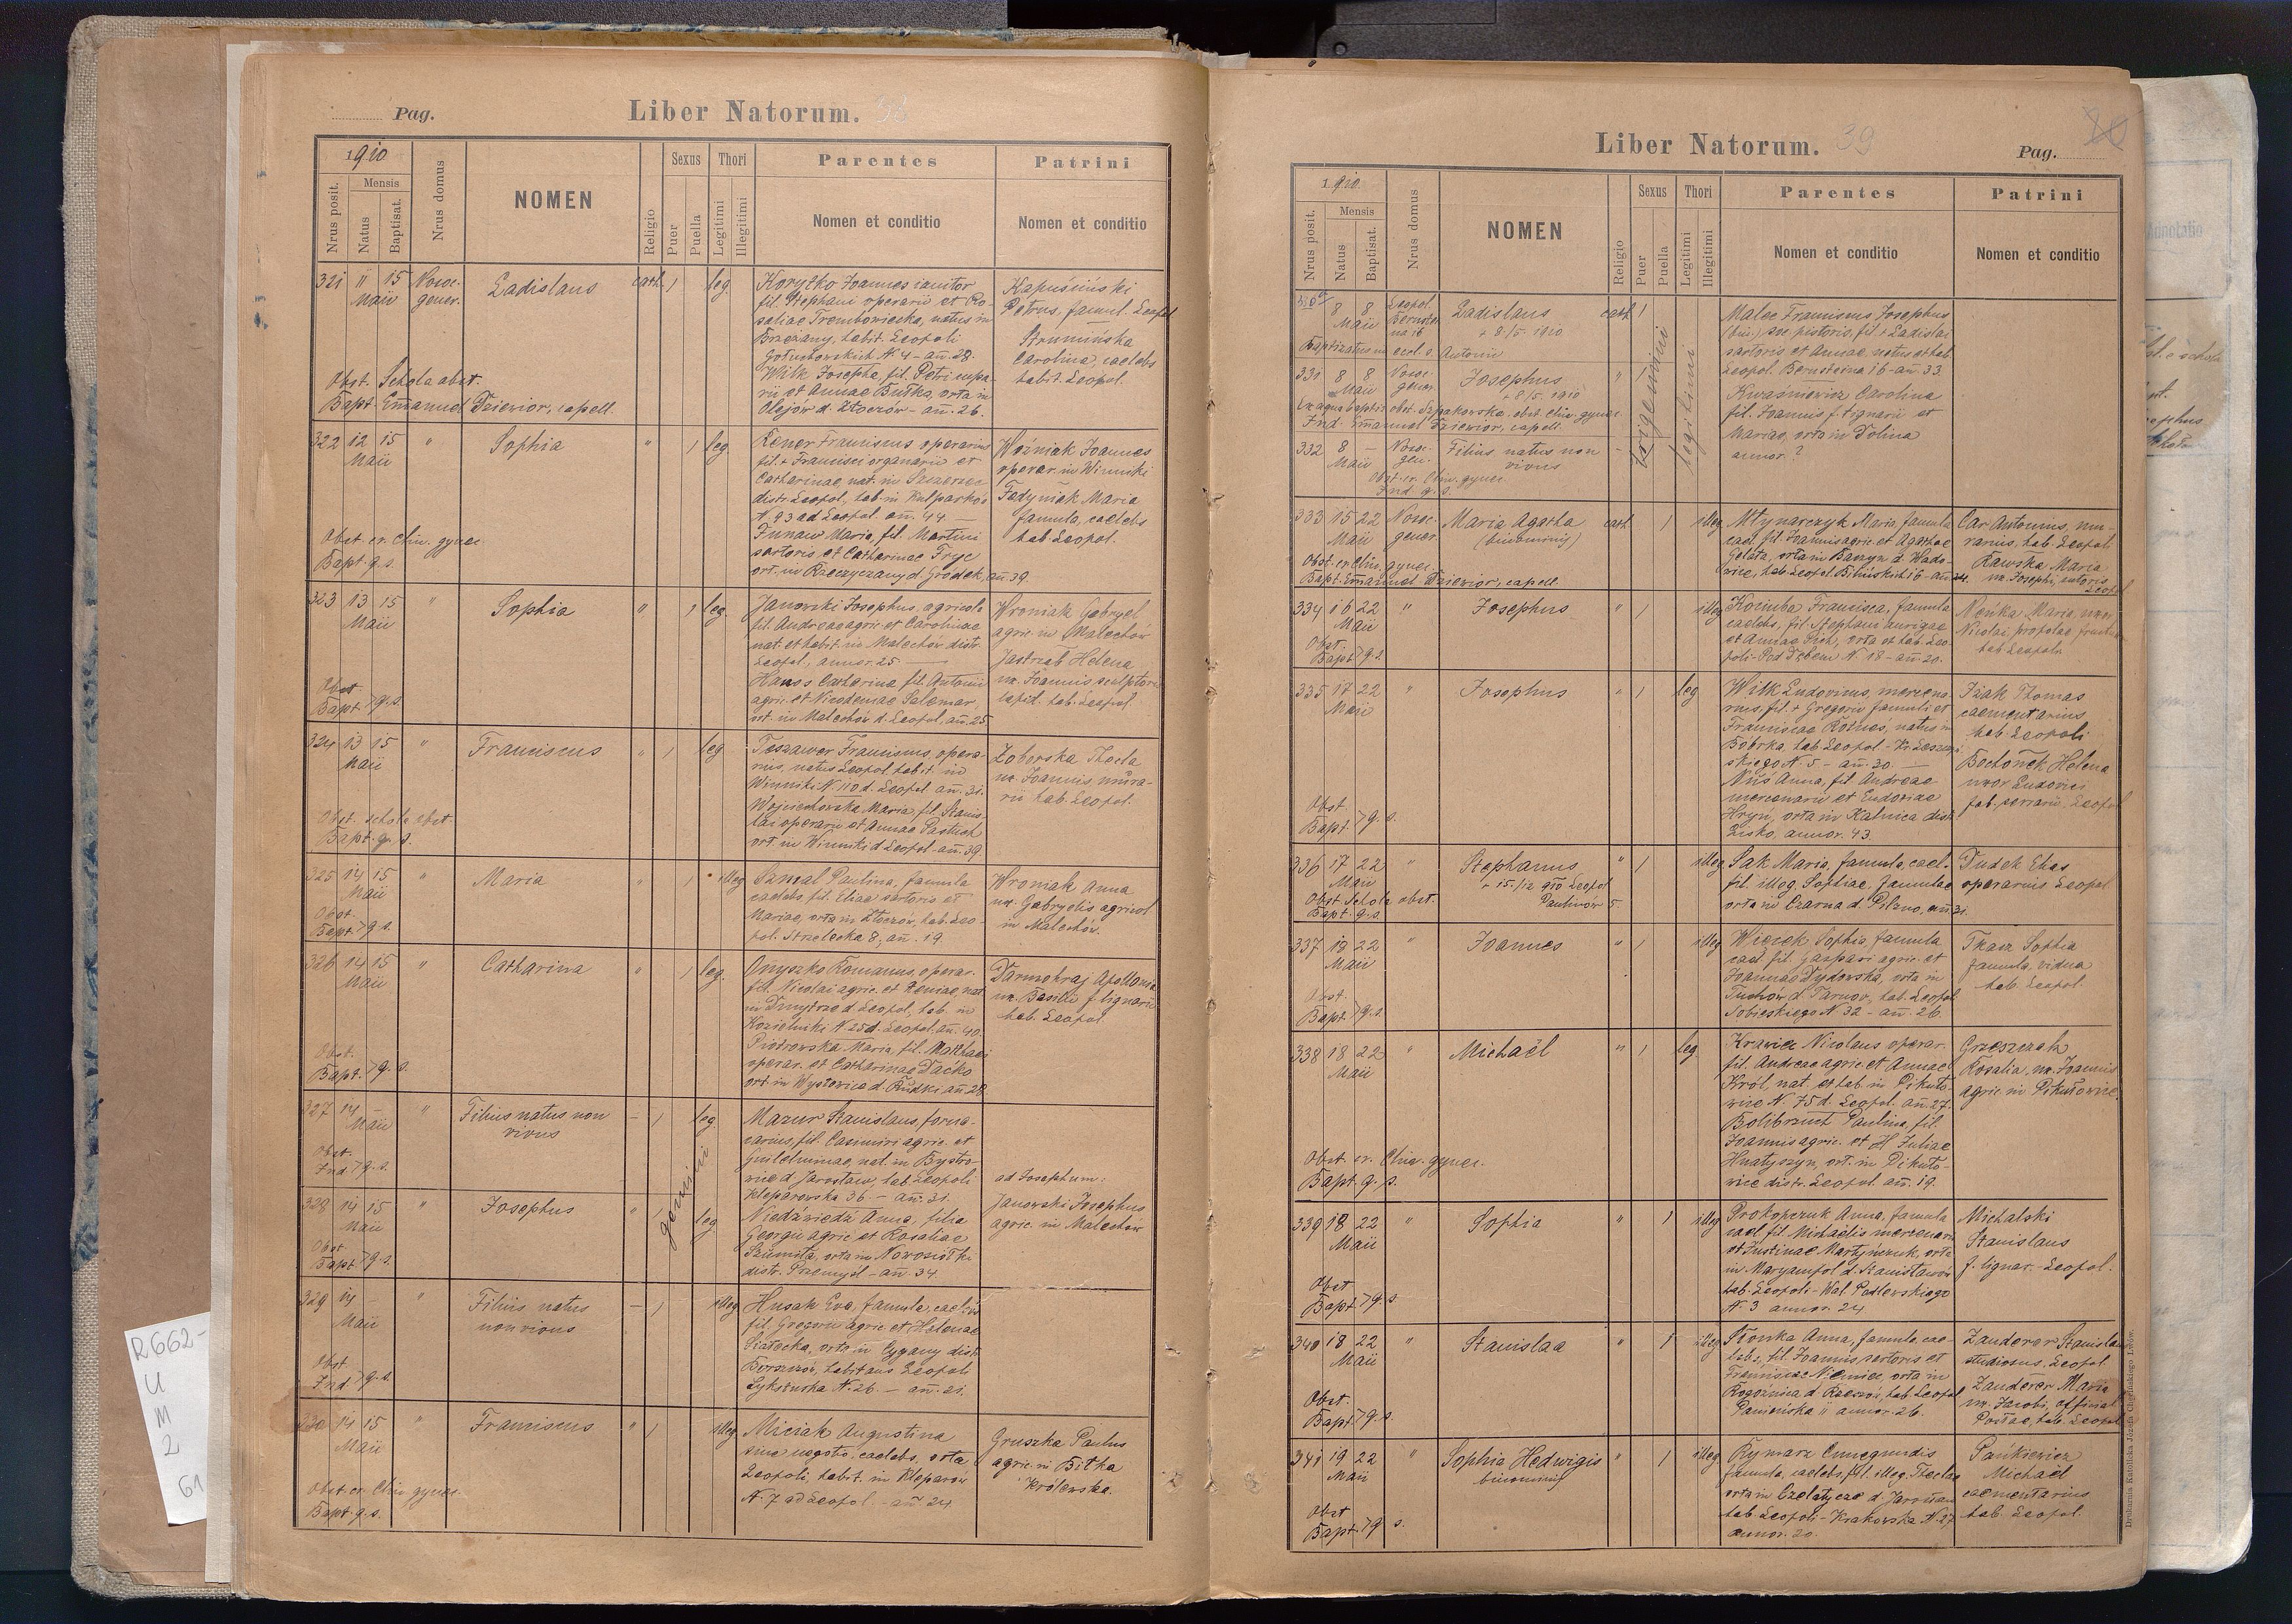 Pag.
Liber Natorum. 38
1910
Nrus posit.
Mensis
Natus
Baptisat.
Nrus domus
NOMEN
Religio
Sexus
Puer
Puella
Thori
Legitimi
Illegitimi
Parentes
Nomen et conditio
Patrini
Nomen et conditio
321 11 15 Nosoc. Ladislaus cath. 1 leg.
Maii gener.
Korytko Joannes ianitor
fil. Stephani operarii et Ro-
saliae Trembowiecka, natus in
Brzeżany, habit. Leopoli
N. 4 - añ. 28.
Wilk Josepha, fil. Petri
et Annae Butka, orta in
Olejów d. Złoczów - añ. 26.
Kapuściński
Petrus, famul. Leopol
Strumińska
Carolina, caelebs
habit. Leopol.
Obst. Schola obst.
Bapt. Emanuel Dziewior, capell.
322 12 15 " Sophia " 1 leg.
Maii
Rener Franciscus operarius
fil. + Francisci organarii et
Catharinae, nat. in Szczerzec
distr. Leopol, hab. in Kulparków
N. 93 ad Leopol. añ. 44
Maria, fil. Martini
sartoris et Catharinae Fryc
ort. in Rzeczyczany d. Gródek, añ. 39.
Woźniak Joannes
operar. in Winniki
Fedyniak Maria
famula, caelebs
hab. Leopol.
Obst. ex Clin. gynec.
Bapt. q. s.
323 13 15 " Sophia " 1 leg.
Maii
Janowski Josephus, agricola
fil. Andreae agric. et Carolinae
nat. et habit. in Malechów distr.
Leopol, annor. 25
Hanss Catharina fil. Antonii
agric. et Nicodemae Salemar,
ort. in Malechów d. Leopol, añ. 25
Wroniak Gabryel
agric. in Malechów
Jastrząb Helena
ux. Joannis sculptoris
lapid. hab. Leopol.
Obst.
Bapt. q. s.
324 13 15 " Franciscus " 1 leg
Maii
Teszawer Franciscus, opera-
rius, natus Leopol habit. in
Winniki N. 110 d. Leopol. añ. 31.
Wojciechowska Maria, fil. Stanis-
lai operarii et Annae Pastuch
ort. in Winniki d. Leopol - añ. 39.
Zoborska Thecla
ux. Joannis mura-
rii hab. Leopol.
Obst. Schola obst.
Bapt. q. s.
325 14 15 " Maria " 1 illeg
Maii
Samal Paulina, famula
caelebs fil. Eliae sartoris et
Mariae, orta in Złoczów, hab. Leo-
pol. Strzelecka 8, añ. 19.
Wroniak Anna
ux. Gabryelis agricol.
in Malechów.
Obst.
Bapt. q. s.
326 14 15 " Catharina " 1 leg.
Maii
Onyszko Romanus, operar.
fil. Nicolai agric. et Xeniae, nat.
in Dmytrze d. Leopol, hab. in
Kozielniki N. 25 d. Leopol. añ. 40.
Piotrowska Maria, fil. Matthaei
operar. et Catharinae Daćko
ort. in Wystowice d. Rudki añ. 28
Darmohraj Apollonia
ux. Basilii f. lignarii
hab. Leopol.
Obst.
Bapt. q. s.
327 14 - " Filius natus non - 1 leg.
Maii vivus
Obst.
Ind. q. s.
gemini
Mazur Stanislaus, forna-
carius, fil. Casimiri agric. et
Guilelminae, nat. in Bystro-
wice d. Jarosław, hab. Leopoli
Kleparowska 36 - añ. 31.
328 14 15 " Josephus " 1 leg.
Maii
Niedźwiedź Anna, filia
Georgii agric. et Rosaliae
Szumita, orta in Nowosiółki
distr. Przemyśl - añ. 34.
ad Josephum:
Janowski Josephus
agric. in Malechów
Obst.
Bapt. q. s.
329 14 - " Filius natus - 1 illeg
Maii non vivus
Husak Eva, famula, caelebs
fil. Gregorii agric. et Helenae
Białecka, orta in Cygany distr.
Borszczów, habitans Leopoli
Łyksztuska N. 26. - añ. 21.
Obst.
Ind. q. s.
330 14 15 " Franciscus " 1 illeg
Maii
Miciak Augustina
sine negotio, caelebs, orta
Leopoli, habit. in Kleparów
N. 7 ad Leopol. - añ. 24
Gruszka Paulus
agric. in Bitka
Królewska.
Obst. ex Clin. gynec.
Bapt. q. s.
R662-
U
M
2
61
Liber Natorum. 39
Pag.
1910.
Nrus posit.
Mensis
Natus
Baptisat.
Nrus domus
NOMEN
Religio
Sexus
Puer
Puella
Thori
Legitimi
Illegitimi
Parentes
Nomen et conditio
Patrini
Nomen et conditio
8 8 Leopol. Ladislaus cath. 1
Maii Bernstei- + 8/5. 1910
na 16
Baptizatus in eccl. s. Antonii
331 8 8 Nosoc. Josephus "
Maii gener. + 8/5. 1910
Ex aqua baptiz. obst. Szpakowska, obst. Clin. gynec.
Ind. Emanuel Dziewior, capell.
332 8 - Nosoc. Filius natus non -
Maii gen. vivus
Obst. ex Clin. gynec.
Ind. q. s.
trigemini
legitimi
Malec Franciscus Josephus
(bin.) soc. pistoris, fil. + Ladislai
sartoris et Annae, natus et hab.
Leopol. Bernsteina 16 - añ. 33.
Kwaśniewicz Carolina
fil. Joannis f. lignarii et
Mariae, orta in Dolina
annor. ?
333 15 22 Nosoc. Maria Agatha cath. 1 illeg
Maii gener. (binominis)
Młynarczyk Maria, famula
cael. fil. Joannis agric. et Agathae
Gelata, orta in Baczyn d. Wado-
wice, hab. Leopol. Bilińskich 16 - añ. 24.
Car Antonius, mu-
rarius, hab. Leopol.
Rawska Maria
ux. Josephi, sutoris
Leopol
Obst. ex Clin. gynec.
Bapt. Emanuel Dziewior, capell.
334 16 22 " Josephus " 1 illeg
Maii
Koimba Francisca, famula
caelebs, fil. Stephani aurigae
et Annae Pich, orta et hab. Leo-
poli - Pod Dębem N. 18 - añ. 20.
Neńka Maria, uxor
Nicolai, propolae
hab. Leopoli
Obst.
Bapt. q. s.
335 17 22 " Josephus " 1 leg
Maii
Wilk Ludovicus, mercena-
rius, fil. + Gregorii famuli et
Franciscae natus in
Bóbrka, hab. Leopol - Kr. Leszczyń-
skiego N. 5 - añ. 30.
Niś Anna, fil. Andreae
mercenarii et Eudoxiae
Hryn, orta in Kalnica distr.
Lisko, annor. 43.
Iżak Thomas
caementarius
hab. Leopoli
Bochonek Helena
uxor Ludovici
fab. ferrarii, Leopol
Obst.
Bapt. q. s.
336 17 22 " Stephanus " 1 illeg
Maii + 15/12 910 Leopol
Paulinów 5.
Sak Maria, famula, cael.
fil. illeg. Sophiae, famulae
orta in Czarna d. Pilzno, añ. 31.
Dudek Elias
operarius Leopol
Obst. Schola obst.
Bapt. q. s.
337 18 22 " Joannes " 1 illeg
Maii
Wiącek Sophia, famula
cael. fil. Gaspari agric. et
Joannae Dydowska, orta in
Tuchów d. Tarnów, hab. Leopol.
Sobieskiego N. 32 - añ. 26.
Tkacz Sophia
famula, vidua
hab. Leopol.
Obst.
Bapt. q. s.
338 18 22 " Michaël " 1 leg.
Maii
Krawiec Nicolaus operar.
fil. Andreae agric. et Annae
Król, nat. et hab. in Pikuło-
wice N. 75 d. Leopol. añ. 27.
Bolibrzuch Paulina, fil.
Joannis agric. et Juliae
Hnatyszyn, ort. in Pikuło-
wice distr. Leopol. añ. 19.
Grzeszczak
Rosalia, ux. Joannis
agric. in Pikułowice.
Obst. ex Clin. gynec.
Bapt. q. s.
339 18 22 " Sophia " 1 illeg
Maii
Prokopczuk Anna, famula
cael. fil. Michaëlis mercenarii
et Justinae Martyńczuk, orta
in Maryampol d. Stanisławów
hab. Leopoli - Wał. Podlewskiego
N. 3 annor. 24
Michalski
Stanislaus
f. lignar. - Leopol.
Obst.
Bapt. q. s.
340 18 22 " Stanislaa " 1 illeg
Maii
Słonka Anna, famula, cae-
lebs, fil. Joannis sartoris et
Franciscae Niemiec, orta in
Rogoźnica d. Rzeszów, hab. Leopol
Panieńska 11 annor. 26.
Zanderer Stanislaus
studiosus, Leopol
Zanderer Maria
ux. Jacobi, official.
Postae, hab. Leopol
Obst.
Bapt. q. s.
341 19 22 " Sophia Hedwigis " 1 illeg
Maii binominis
Rymarz Cunegundis
famula, caelebs, fil. illeg. Theclae
orta in Czelatycze d. Jarosław
hab. Leopoli - Krakowska N. 27
annor. 20.
Pańkiewicz
Michaël
caementarius
hab. Leopol.
Obst
Bapt. q. s.
Drukarnia Katolicka Józefa Chęcińskiego Lwów.